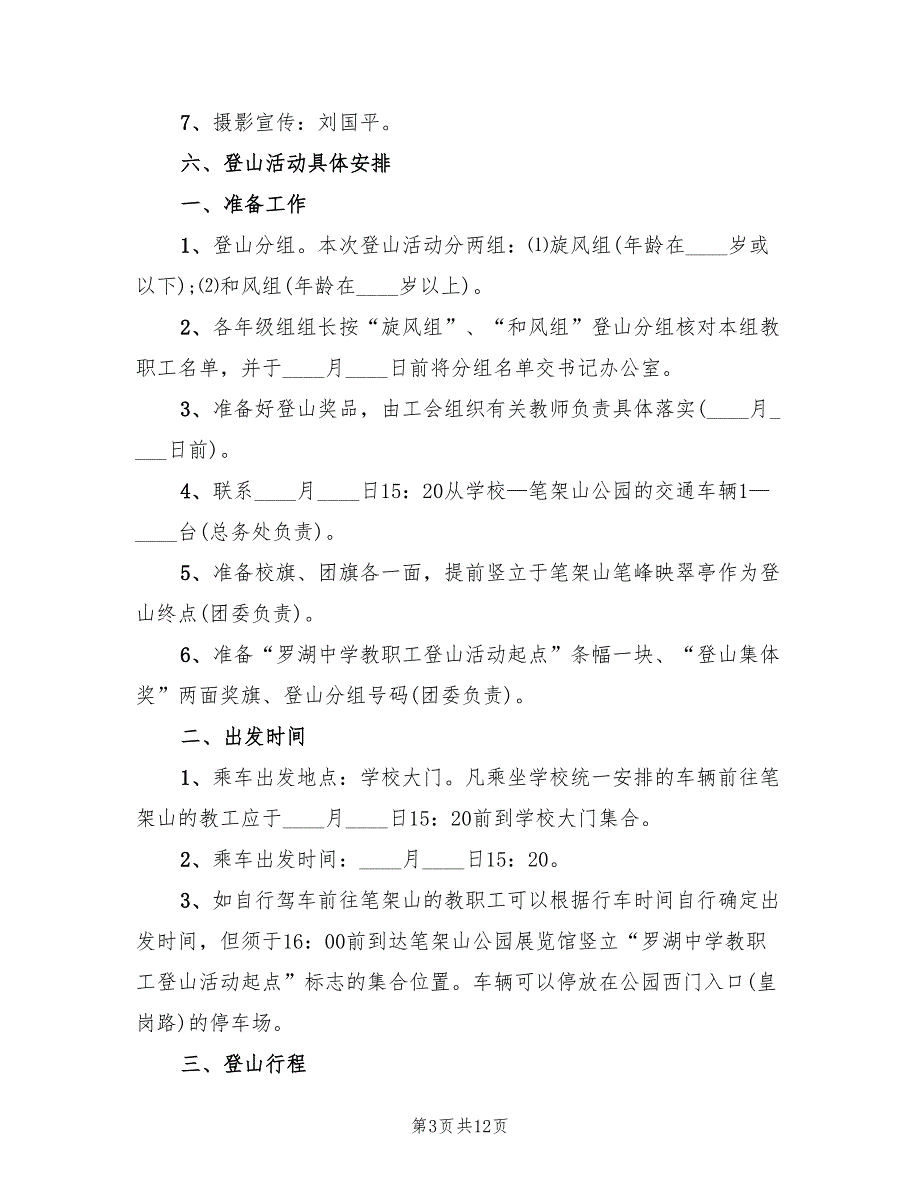 7、摄影宣传：刘国平。
六、登山活动具体安排
一、准备工作
1、登山分组。本次登山活动分两组：⑴旋风组(年龄在____岁或
以下);⑵和风组(年龄在____岁以上)。
2、各年级组组长按“旋风组”、“和风组”登山分组核对本组教
职工名单，并于____月____日前将分组名单交书记办公室。
3、准备好登山奖品，由工会组织有关教师负责具体落实(____月_
___日前)。
4、联系____月____日15：20从学校—笔架山公园的交通车辆1—
____台(总务处负责)。
5、准备校旗、团旗各一面，提前竖立于笔架山笔峰映翠亭作为登
山终点(团委负责)。
6、准备“罗湖中学教职工登山活动起点”条幅一块、“登山集体
奖”两面奖旗、登山分组号码(团委负责)。
二、出发时间
1、乘车出发地点：学校大门。凡乘坐学校统一安排的车辆前往笔
架山的教工应于____月____日15：20前到学校大门集合。
2、乘车出发时间：____月____日15：20。
3、如自行驾车前往笔架山的教职工可以根据行车时间自行确定出
发时间，但须于16：00前到达笔架山公园展览馆竖立“罗湖中学教职
工登山活动起点”标志的集合位置。车辆可以停放在公园西门入口(皇
岗路)的停车场。
三、登山行程
第3页共12页